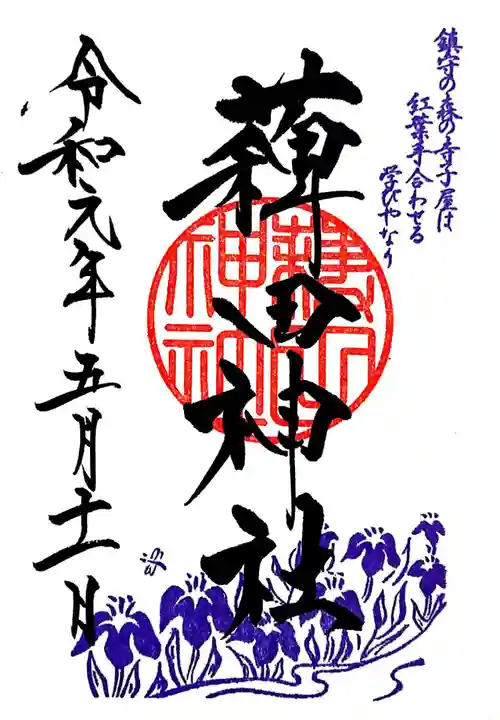 鎮守の森の寺子屋は
紅葉手合わせる
学びやなり
薭田神社
令和元年五月十一日